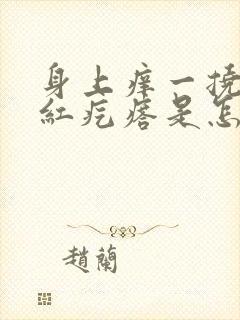 身上痒一挠
红疙瘩是怎
趙蘭